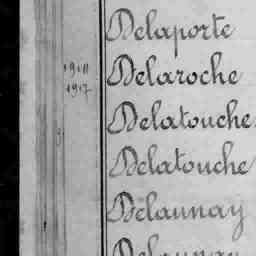 Delaporte
1911 Delaroche
1917
Delatouche
Delatouche
Delaunay
Delaunay